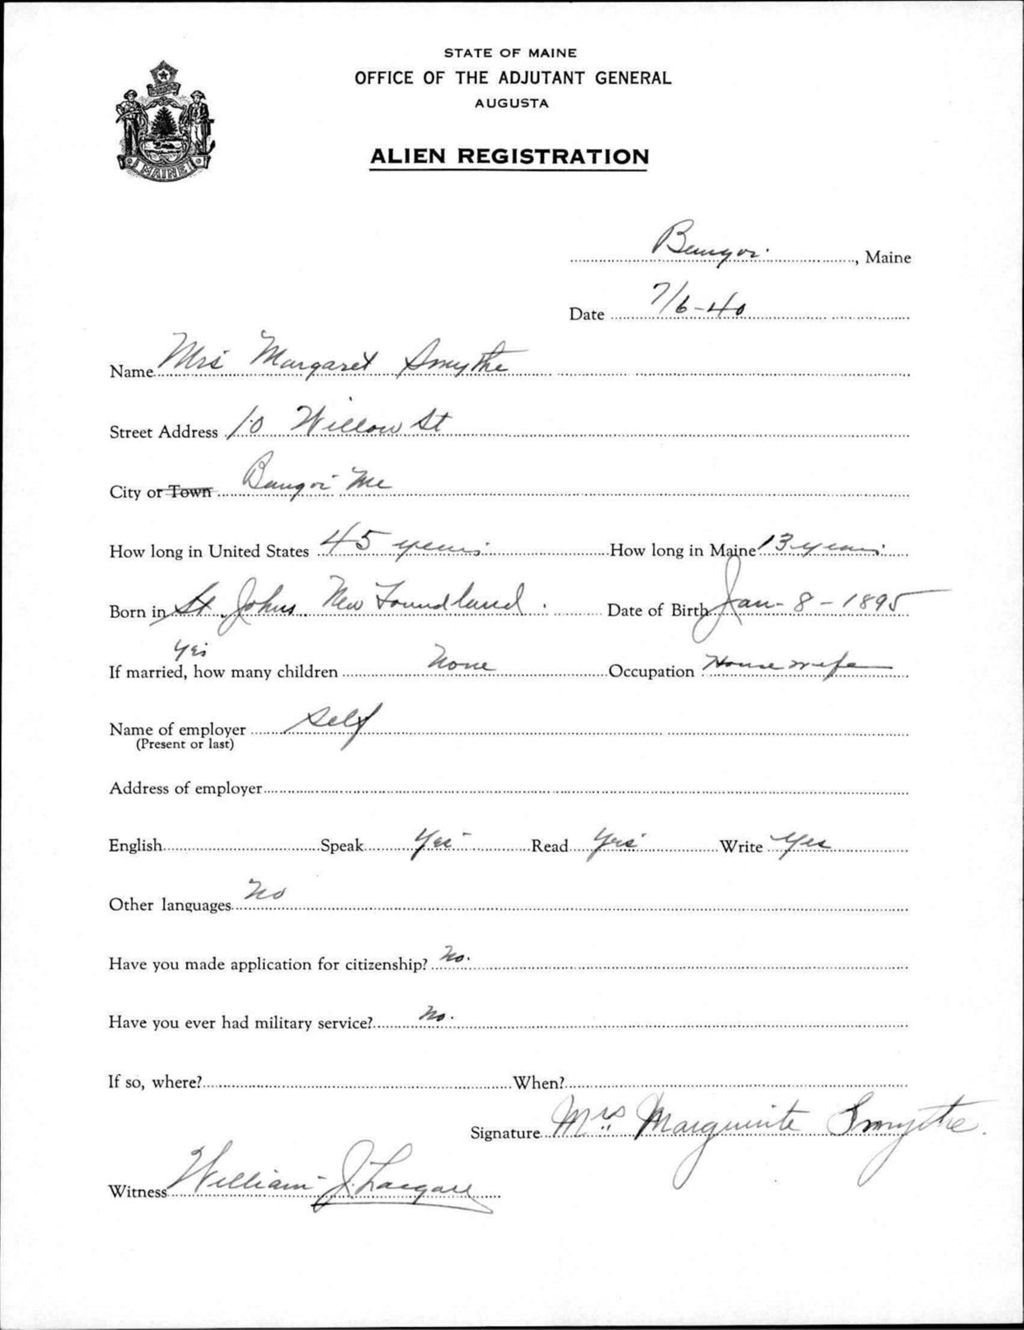 STATE OF MAINE
OFFICE OF THE ADJUTANT GENERAL
AUGUSTA
ALIEN REGISTRATION
MAINE
Bangor, Maine
Date 7/6-40
Name Mrs Margaret Smythe
Street Address 10 Willow St
City or Town Bangor Me
How long in United States 45 years How long in Maine 13 years
Born in St Johns New Foundland. Date of Birth Jan-8-1895
Yes
If married, how many children None Occupation House wife
Name of employer Self
(Present or last)
Address of employer
English Speak Yes Read Yes Write Yes
Other languages No
Have you made application for citizenship? No.
Have you ever had military service? No.
If so, where? When?
Signature Mrs Marguirite Smythe.
Witness William J.